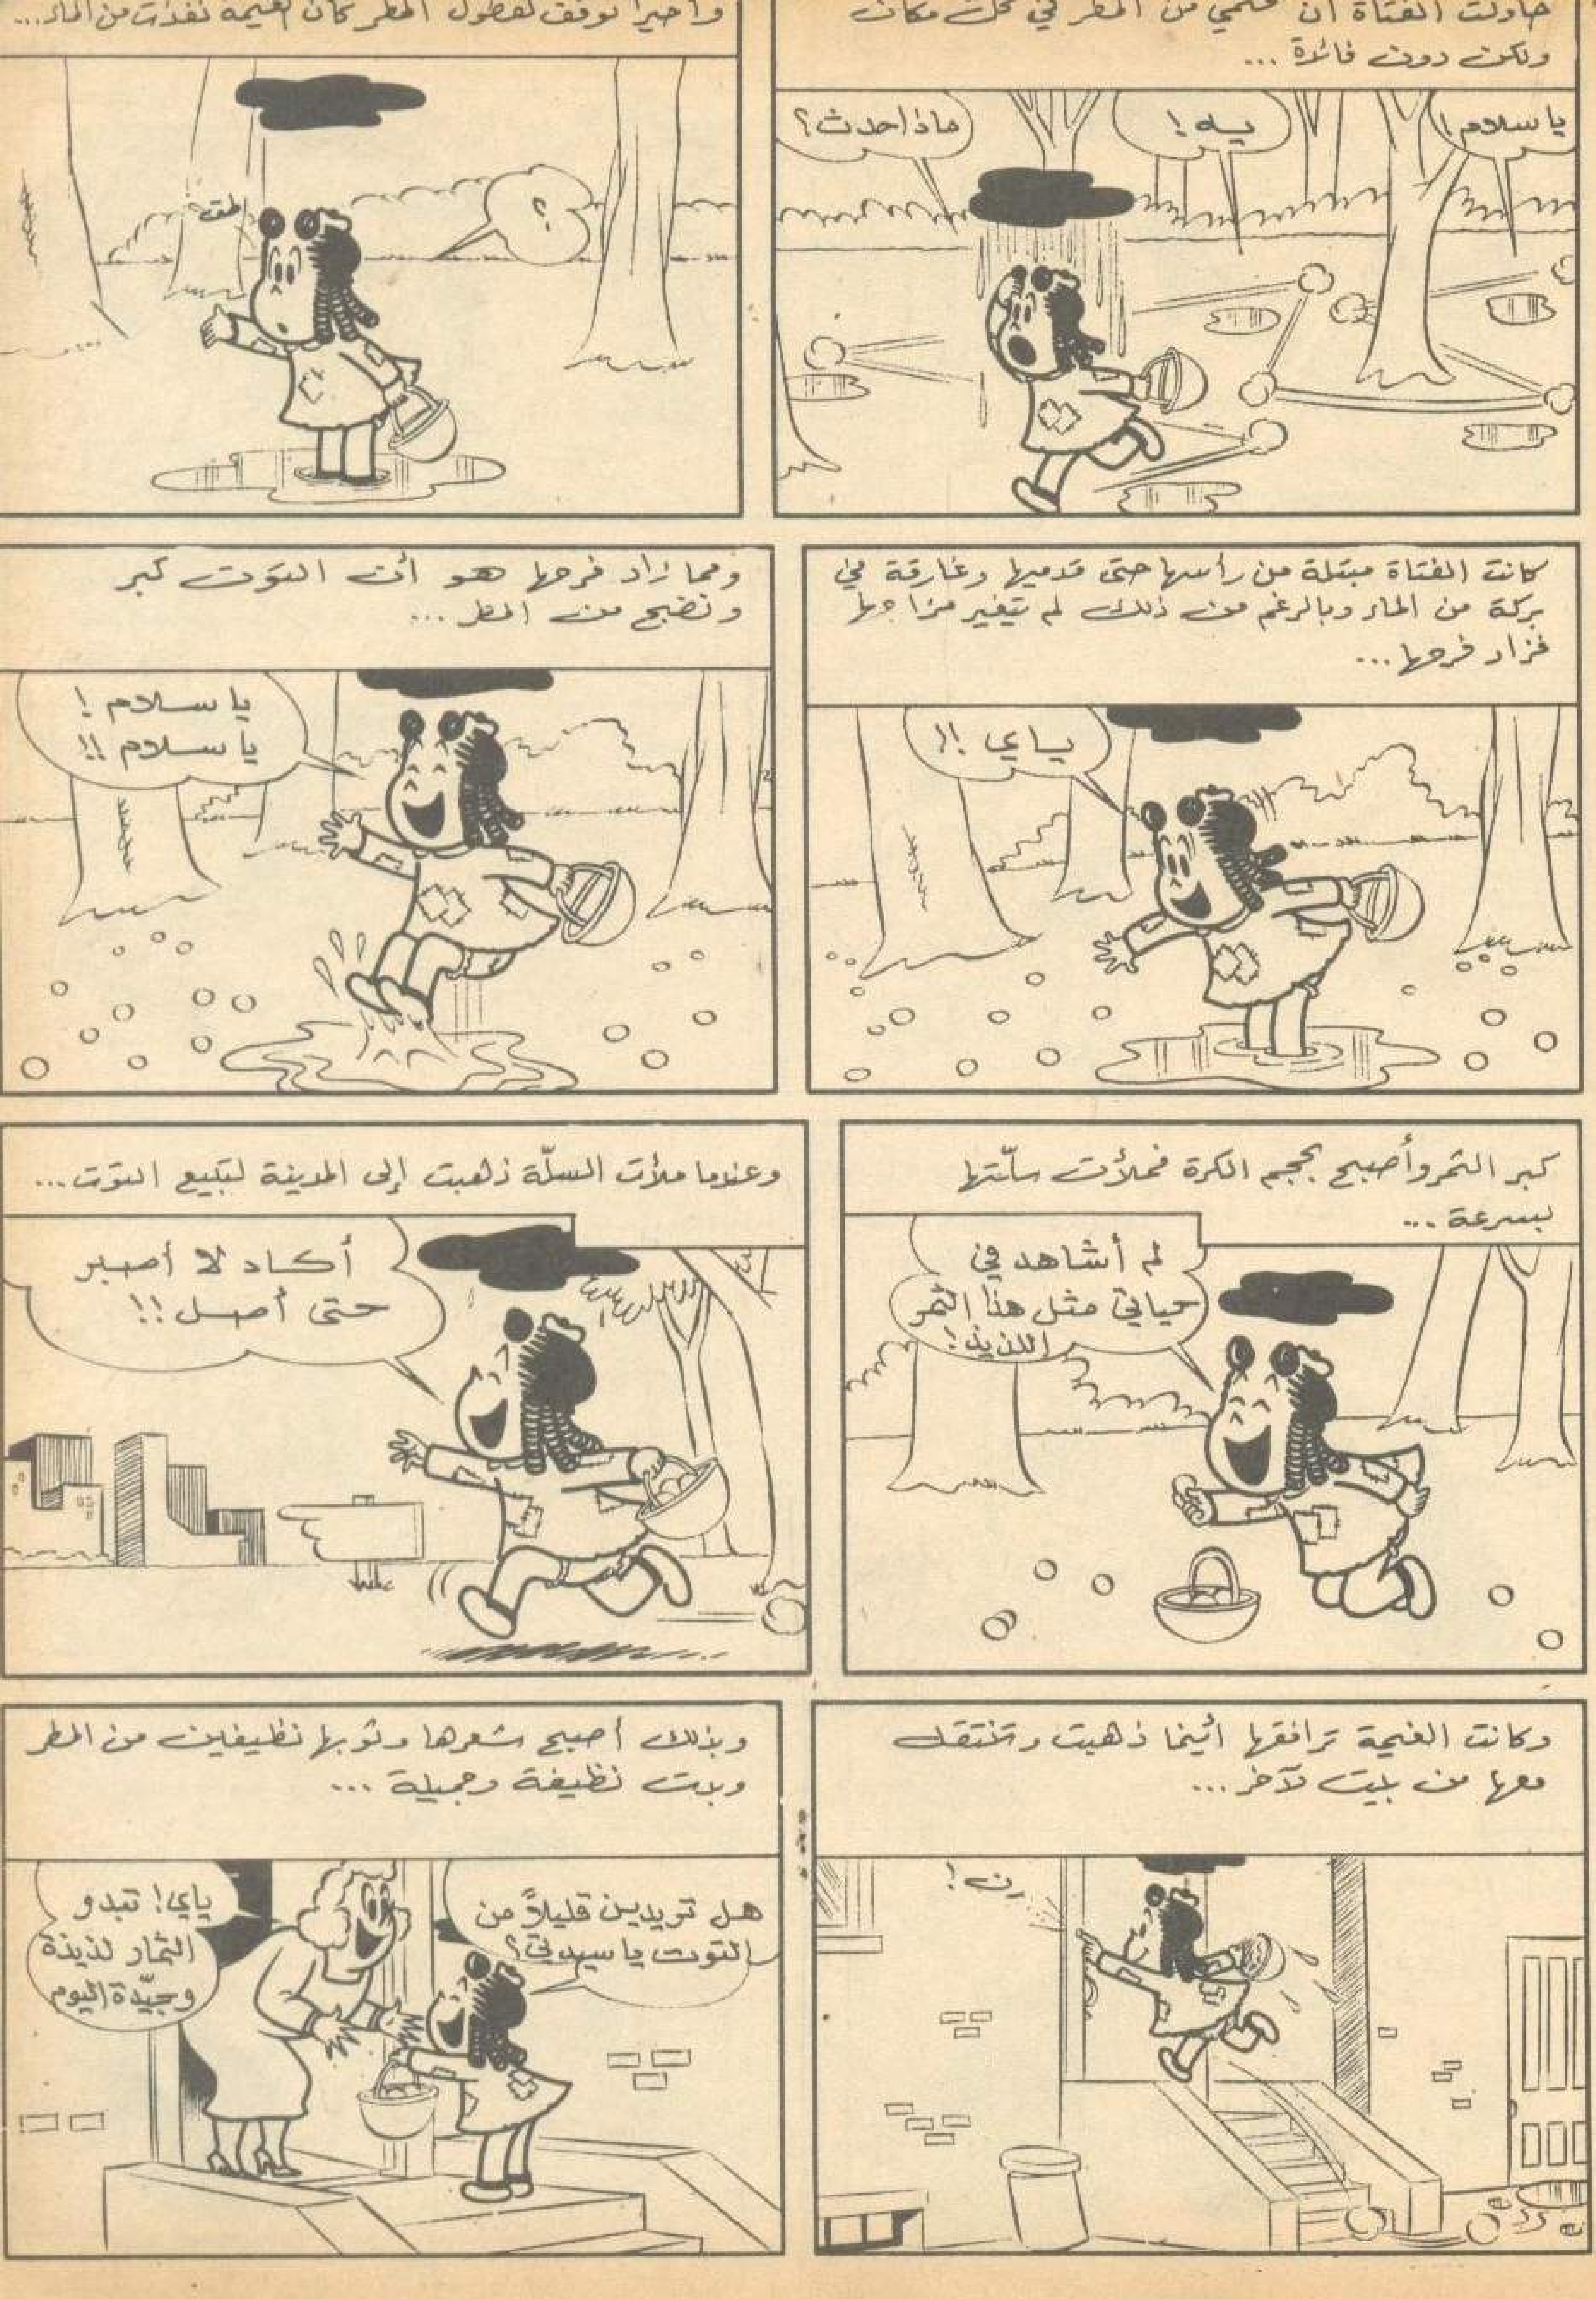 حاولت الفتاة أن تحتمي من المطر في كل مكان
ولكن دون فائدة ...
يا سلام!
يـه !
ماذا حدث؟
وأخيراً توقف هطول المطر كأن الغيمة نفذت من الماء...
طق
؟
كانت الفتاة مبتلة من رأسها حتى قدميها وغارقة في
بركة من الماء وبالرغم من ذلك لم يتغير مزاجها
فزاد فرحها ...
يـاي !!
ومما زاد فرحها هو أن التوت كبر
ونضج من المطر ...
يا سـلام !
يا سـلام !!
كبر الثمر وأصبح بحجم الكرة فملأت سلّتها
بسرعة ...
لم أشاهد في
حياتي مثل هذا الثمر
اللذيذ!
وعندما ملأت السلّة ذهبت إلى المدينة لتبيع التوت...
أكـاد لا أصـبر
حتى أصـل !!
وكانت الغيمة ترافقها أينما ذهبت وتنتقل
معها من بيت لآخر ...
رن !
وبذلك أصبح شعرها وثوبها نظيفين من المطر
وبدت نظيفة وجميلة ...
هـل تريدين قليلاً من
التوت يا سيدتي؟
ياي! تبدو
الثمار لذيذة
وجيّدة اليوم